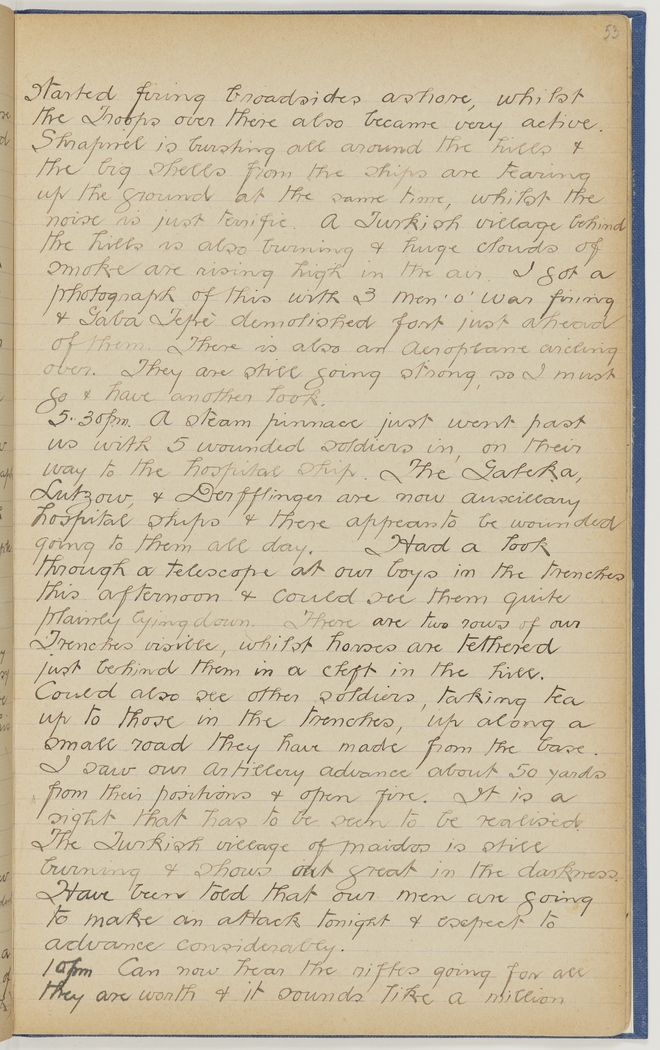 53
Started firing broadsides ashore, whilst
the Troops over there also became very active.
Shrapnel is bursting all around the hills &
the big shells from the ships are tearing
up the ground at the same time, whilst the
noise is just terrific. A Turkish village behind
the hills is also burning & huge clouds of
smoke are rising high in the air. I got a
photograph of this with 3 men 'o' war firing
& Gaba Tepè demolished fort just ahead
of them. There is also an Aeroplane circling
over. They are still going strong, so I must
go & have another look.
5.30pm. A steam pinnace just went past
us with 5 wounded soldiers in, on their
way to the hospital ship. The Galeka,
Lutzow, & Derfflinger are now auxillary
hospital ships & there appears to be wounded
going to them all day. Had a look
through a telescope at our boys in the trenches
this afternoon & could see them quite
plainly lying down. There are two rows of our
Trenches visible, whilst horses are tethered
just behind them in a cleft in the hill.
Could also see other soldiers, taking tea
up to those in the trenches, up along a
small road they have made from the base.
I saw our Artillery advance about 50 yards
from their positions & open fire. It is a
sight that has to be seen to be realised.
The Turkish village of Maidos is still
burning & shows out great in the darkness.
Have been told that our men are going
to make an attack tonight & expect to
advance considerably.
10pm Can now hear the rifles going for all
they are worth & it sounds like a million